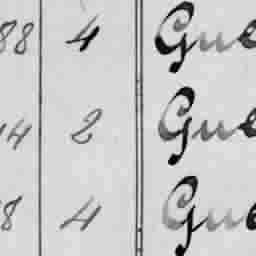 88 4 Gue
14 2 Gue
8 4 Gue